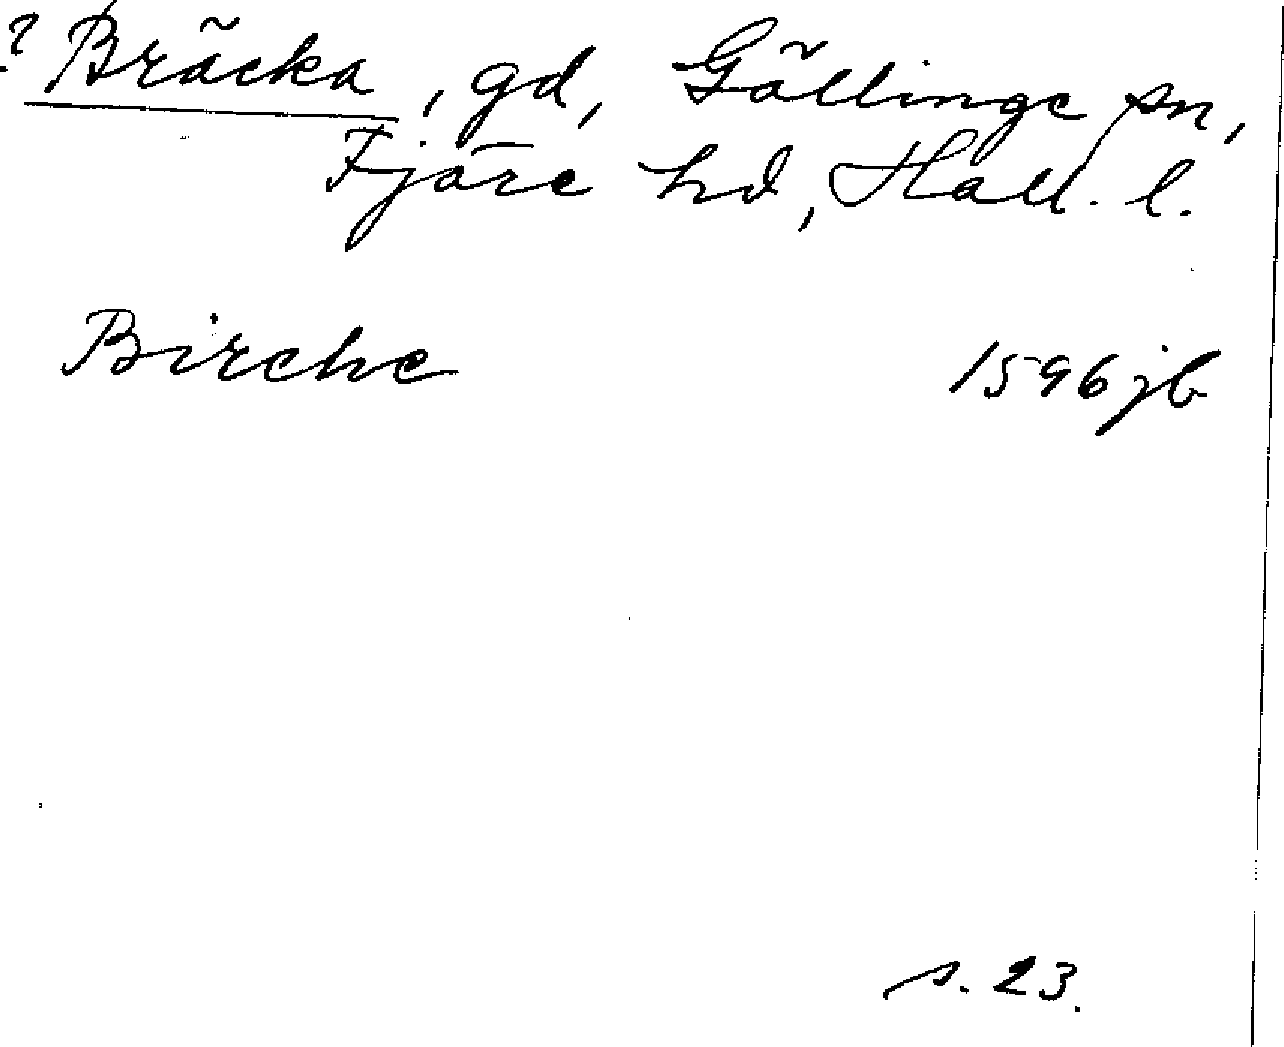 ? Bräcka, gd, Gällinge sn,
Fjäre hd, Hall. l.
Birche 1596 jb
s. 23.